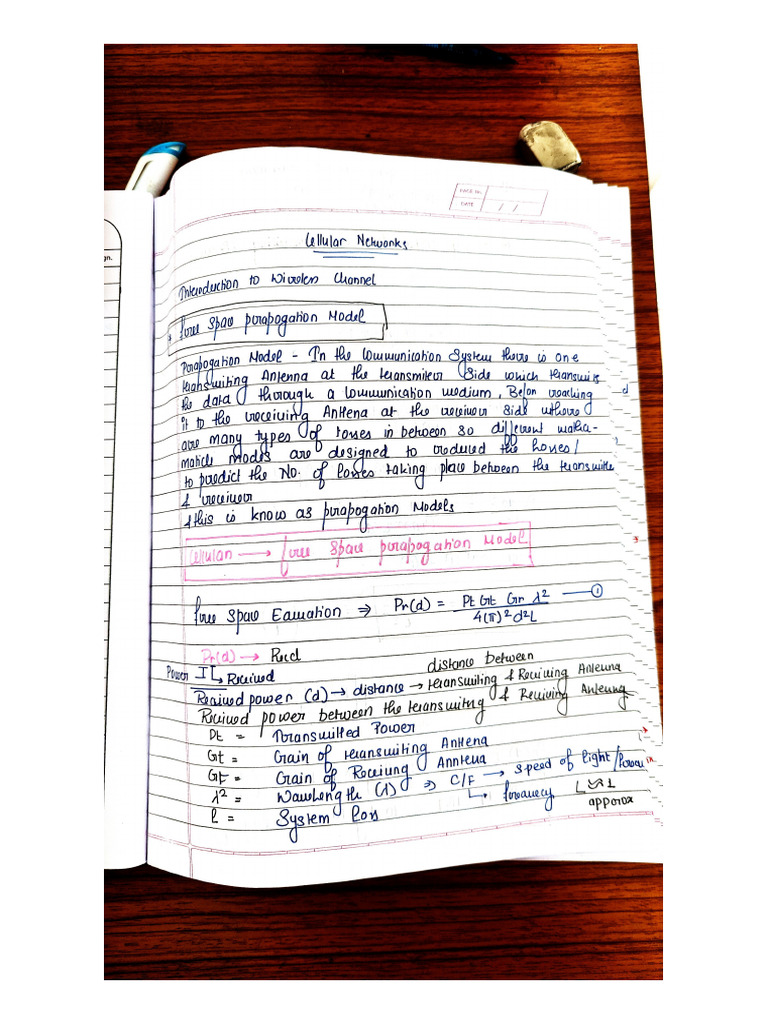 PAGE No.
DATE / /
Cellular Networks
Introduction to Wireless Channel
free Space Porapogation Model
Porapogation Model - In the Communication System there is one
transmiting Antenna at the transmiter Side which transmits
the data through a Communication medium, Before reaching
it to the receiving Antena at the receiver side where
are many types of losses in between so different mathe-
maticle modes are designed to reduced the losses/
to predict the No. of losses taking place between the transmitter
& receiver
& this is know as porapogation Models
Cellular → free Space porapogation Model
free Space Eauation ⇒ Pr(d) = Pt Gt Gr λ² / 4(π)²d²L — ①
Pr(d) →
Power ↳ Received
distance between
Recived power (d) → distance → transmiting & Reciving Antenna
Recived power between the transmiting & Reciving Antenna
Pt = Transmitted Power
Gt = Gain of transmiting Antena
Gr = Gain of Reciving Anntena
λ² = Wavelength (λ) ⇒ C/F → speed of light/
↳ L ≈ 1
l = System loss approx